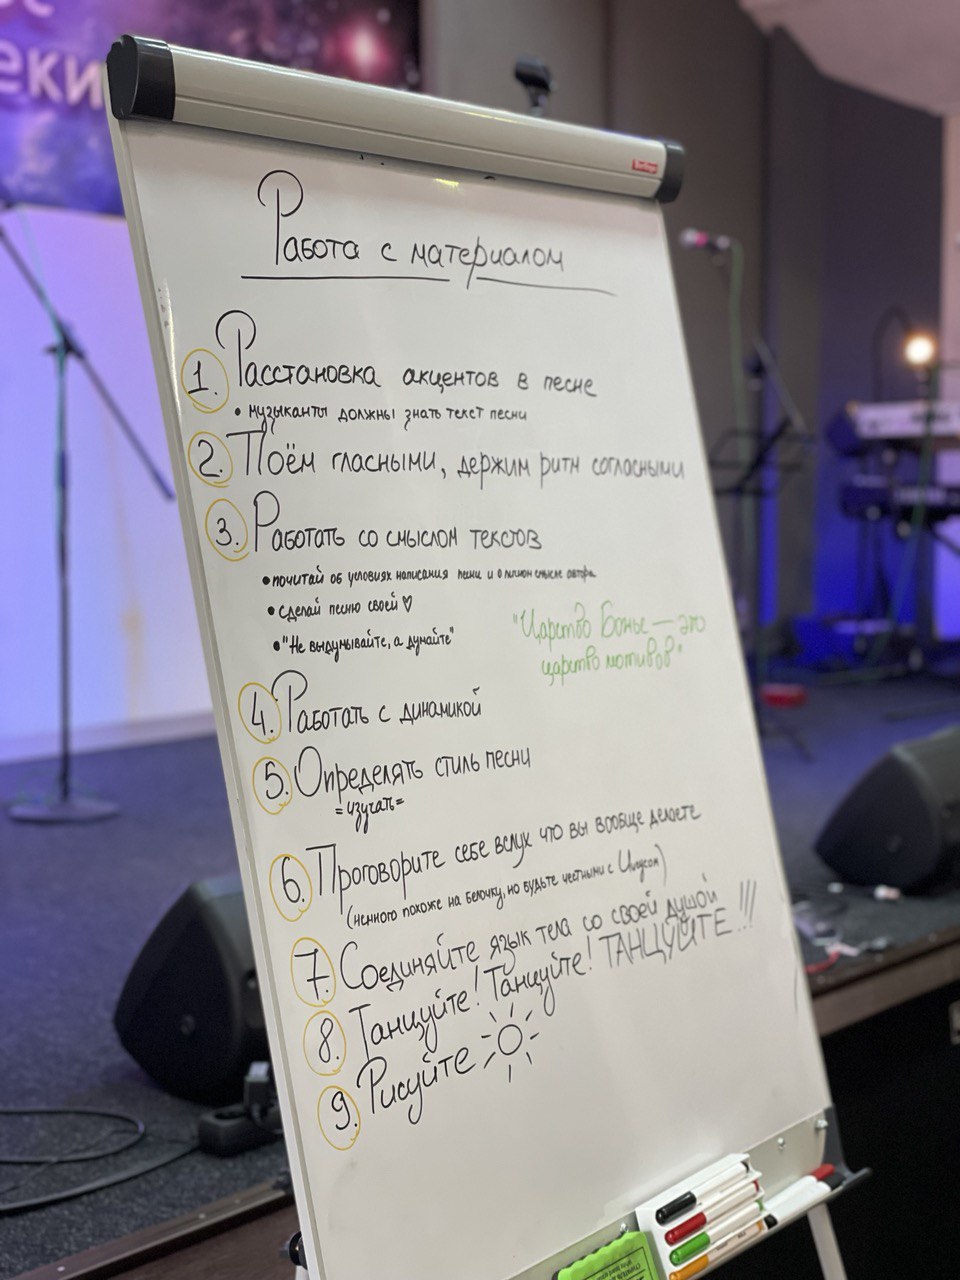 еки
Berlingo
Работа с материалом
1. Расстановка акцентов в песне
• музыканты должны знать текст песни
2. Поём гласными, держим ритм согласными
3. Работать со смыслом текстов
• почитай об условиях написания песни и о личном смысле автора
• сделай песню своей ♡
• "Не выдумывайте, а думайте"
"Царство Божье — это
царство мотивов"
4. Работать с динамикой
5. Определять стиль песни
= изучать =
6. Проговорите себе вслух что вы вообще делаете
(немного похоже на белочку, но будьте честными с Иисусом)
7. Соединяйте язык тела со своей душой
8. Танцуйте! Танцуйте! ТАНЦУЙТЕ!!!
9. Рисуйте